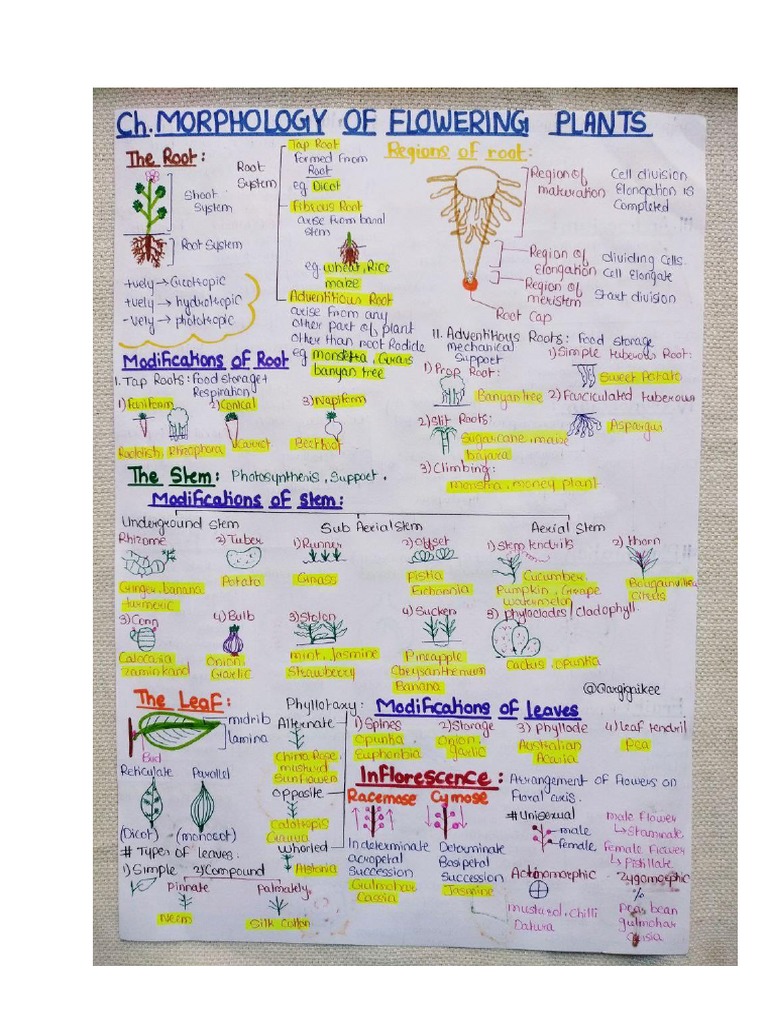 Ch. MORPHOLOGY OF FLOWERING PLANTS
The Root:
Shoot
System
Root System
+vely → Geotropic
+vely → hydrotropic
-vely → phototropic
Root
System
Tap Root
formed from
Root
eg. Dicot
Fibrous Root
arise from basal
stem
eg. wheat, Rice
maize
Adventitious Root
arise from any
other part of plant
other than root Radicle
eg
banyan tree
Regions of root:
Region of
maturation
Cell division
Elongation is
Completed
Region of
Elongation
dividing Cells
Cell Elongate
Region of
meristem
Start division
Root Cap
Modifications of Root
1. Tap Roots: Food storage+
Respiration
1) Fusiform
2) Conical
3) Napiform
Raddish, Rhizophora
Carret
Beetroot
II. Adventitious Roots: Food storage
mechanical
Support
1) Prop Root:
Banyan tree
2) Stilt Roots:
Sugarcane, maize
bajara
3) Climbing:
money plant
1) Simple tuberous Root:
Sweet Potato
2) Fasciculated tuberous
The Stem: Photosynthesis, Support.
Modifications of Stem:
Underground stem
Sub Aerial stem
Aerial Stem
Rhizome
2) Tuber
1) Runner
2) Offset
1) Stem tendrils
2) thorn
Ginger, banana
turmeric
Potato
Grass
Pistia
Eichornia
Cucumber
Pumpkin, Grape
watermelon
Bougainvillea
citrus
3) Corn
4) Bulb
3) Stolon
4) Sucker
3) phylloclades / cladophyll.
Calocasia
zaminkand
Onion,
Garlic
mint, Jasmine
Strawberry
Pineapple
Chrysanthemum
Banana
Cactus, opuntia
The Leaf:
midrib
lamina
Bud
Reticulate
Parallel
(Dicot)
(monocot)
# Types of leaves.
1) Simple
2) Compound
Pinnate
Palmately
Neem
Silk Cotton
Phyllotaxy:
Alternate
China Rose,
mustard
Sunflowers
opposite
Calotropis
Guava
whorled
Alstonia
Modifications of leaves
1) Spines
2) Storage
3) phyllode
4) Leaf tendril
Opuntia
Euphorbia
Onion,
garlic
Australian
Acacia
Pea
Inflorescence: Arrangement of flowers on
floral axis.
Racemose
Cymose
Indeterminate
acropetal
Succession
Gulmohar
Cassia
Determinate
Basipetal
Succession
Jasmine
# Unisexual
male
female
male Flower
↳ Staminate
Female Flower
↳ Pistillate
Actinomorphic
Zygomorphic
mustard, Chilli
Datura
Pea, bean
gulmohar